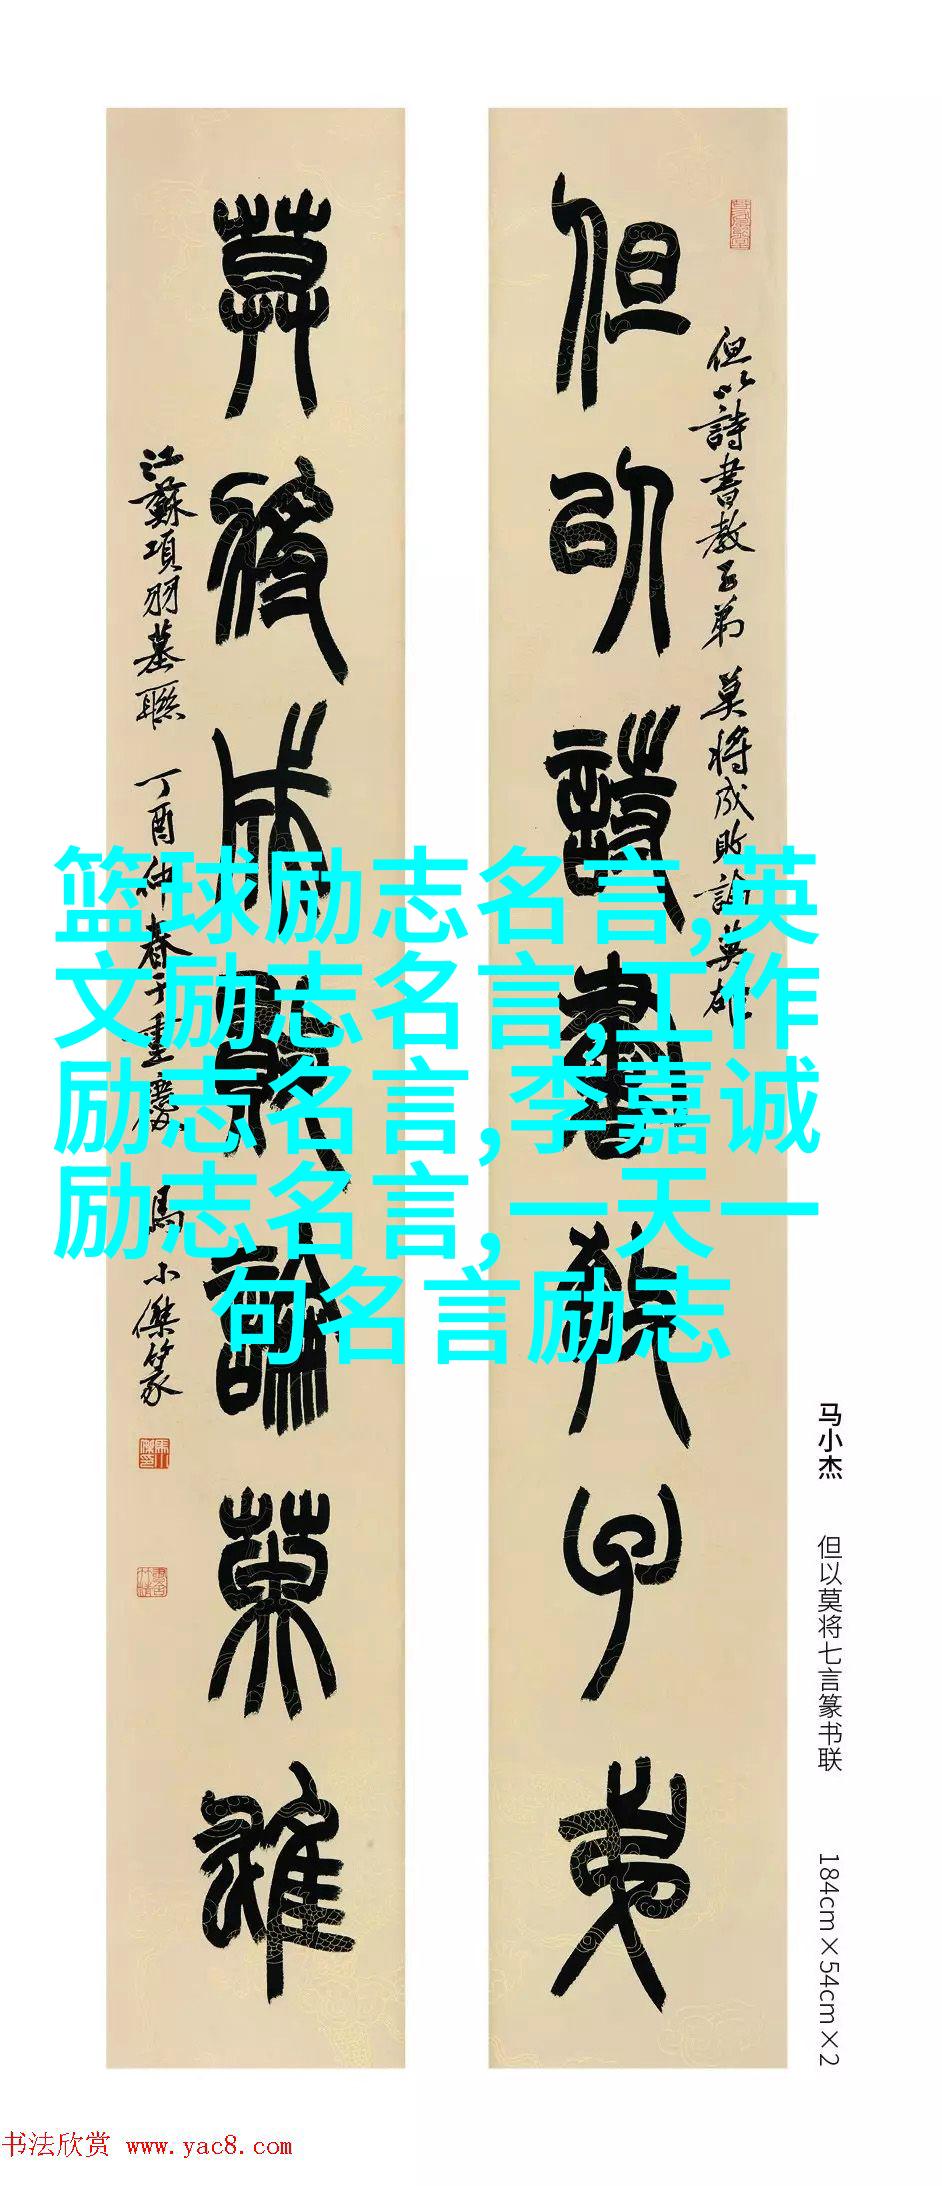 但以詩書教子弟
但以詩書教子弟 莫將成敗論英雄
莫將成敗論英雄
江蘇項羽墓聯 丁酉仲春于重慶 馬小傑篆
篮球励志名言,英
文励志名言,工作
励志名言,李嘉诚
励志名言,一天一
句名言励志
马小杰 但以莫将七言篆书联 184cm×54cm×2
书法欣赏 www.yac8.com